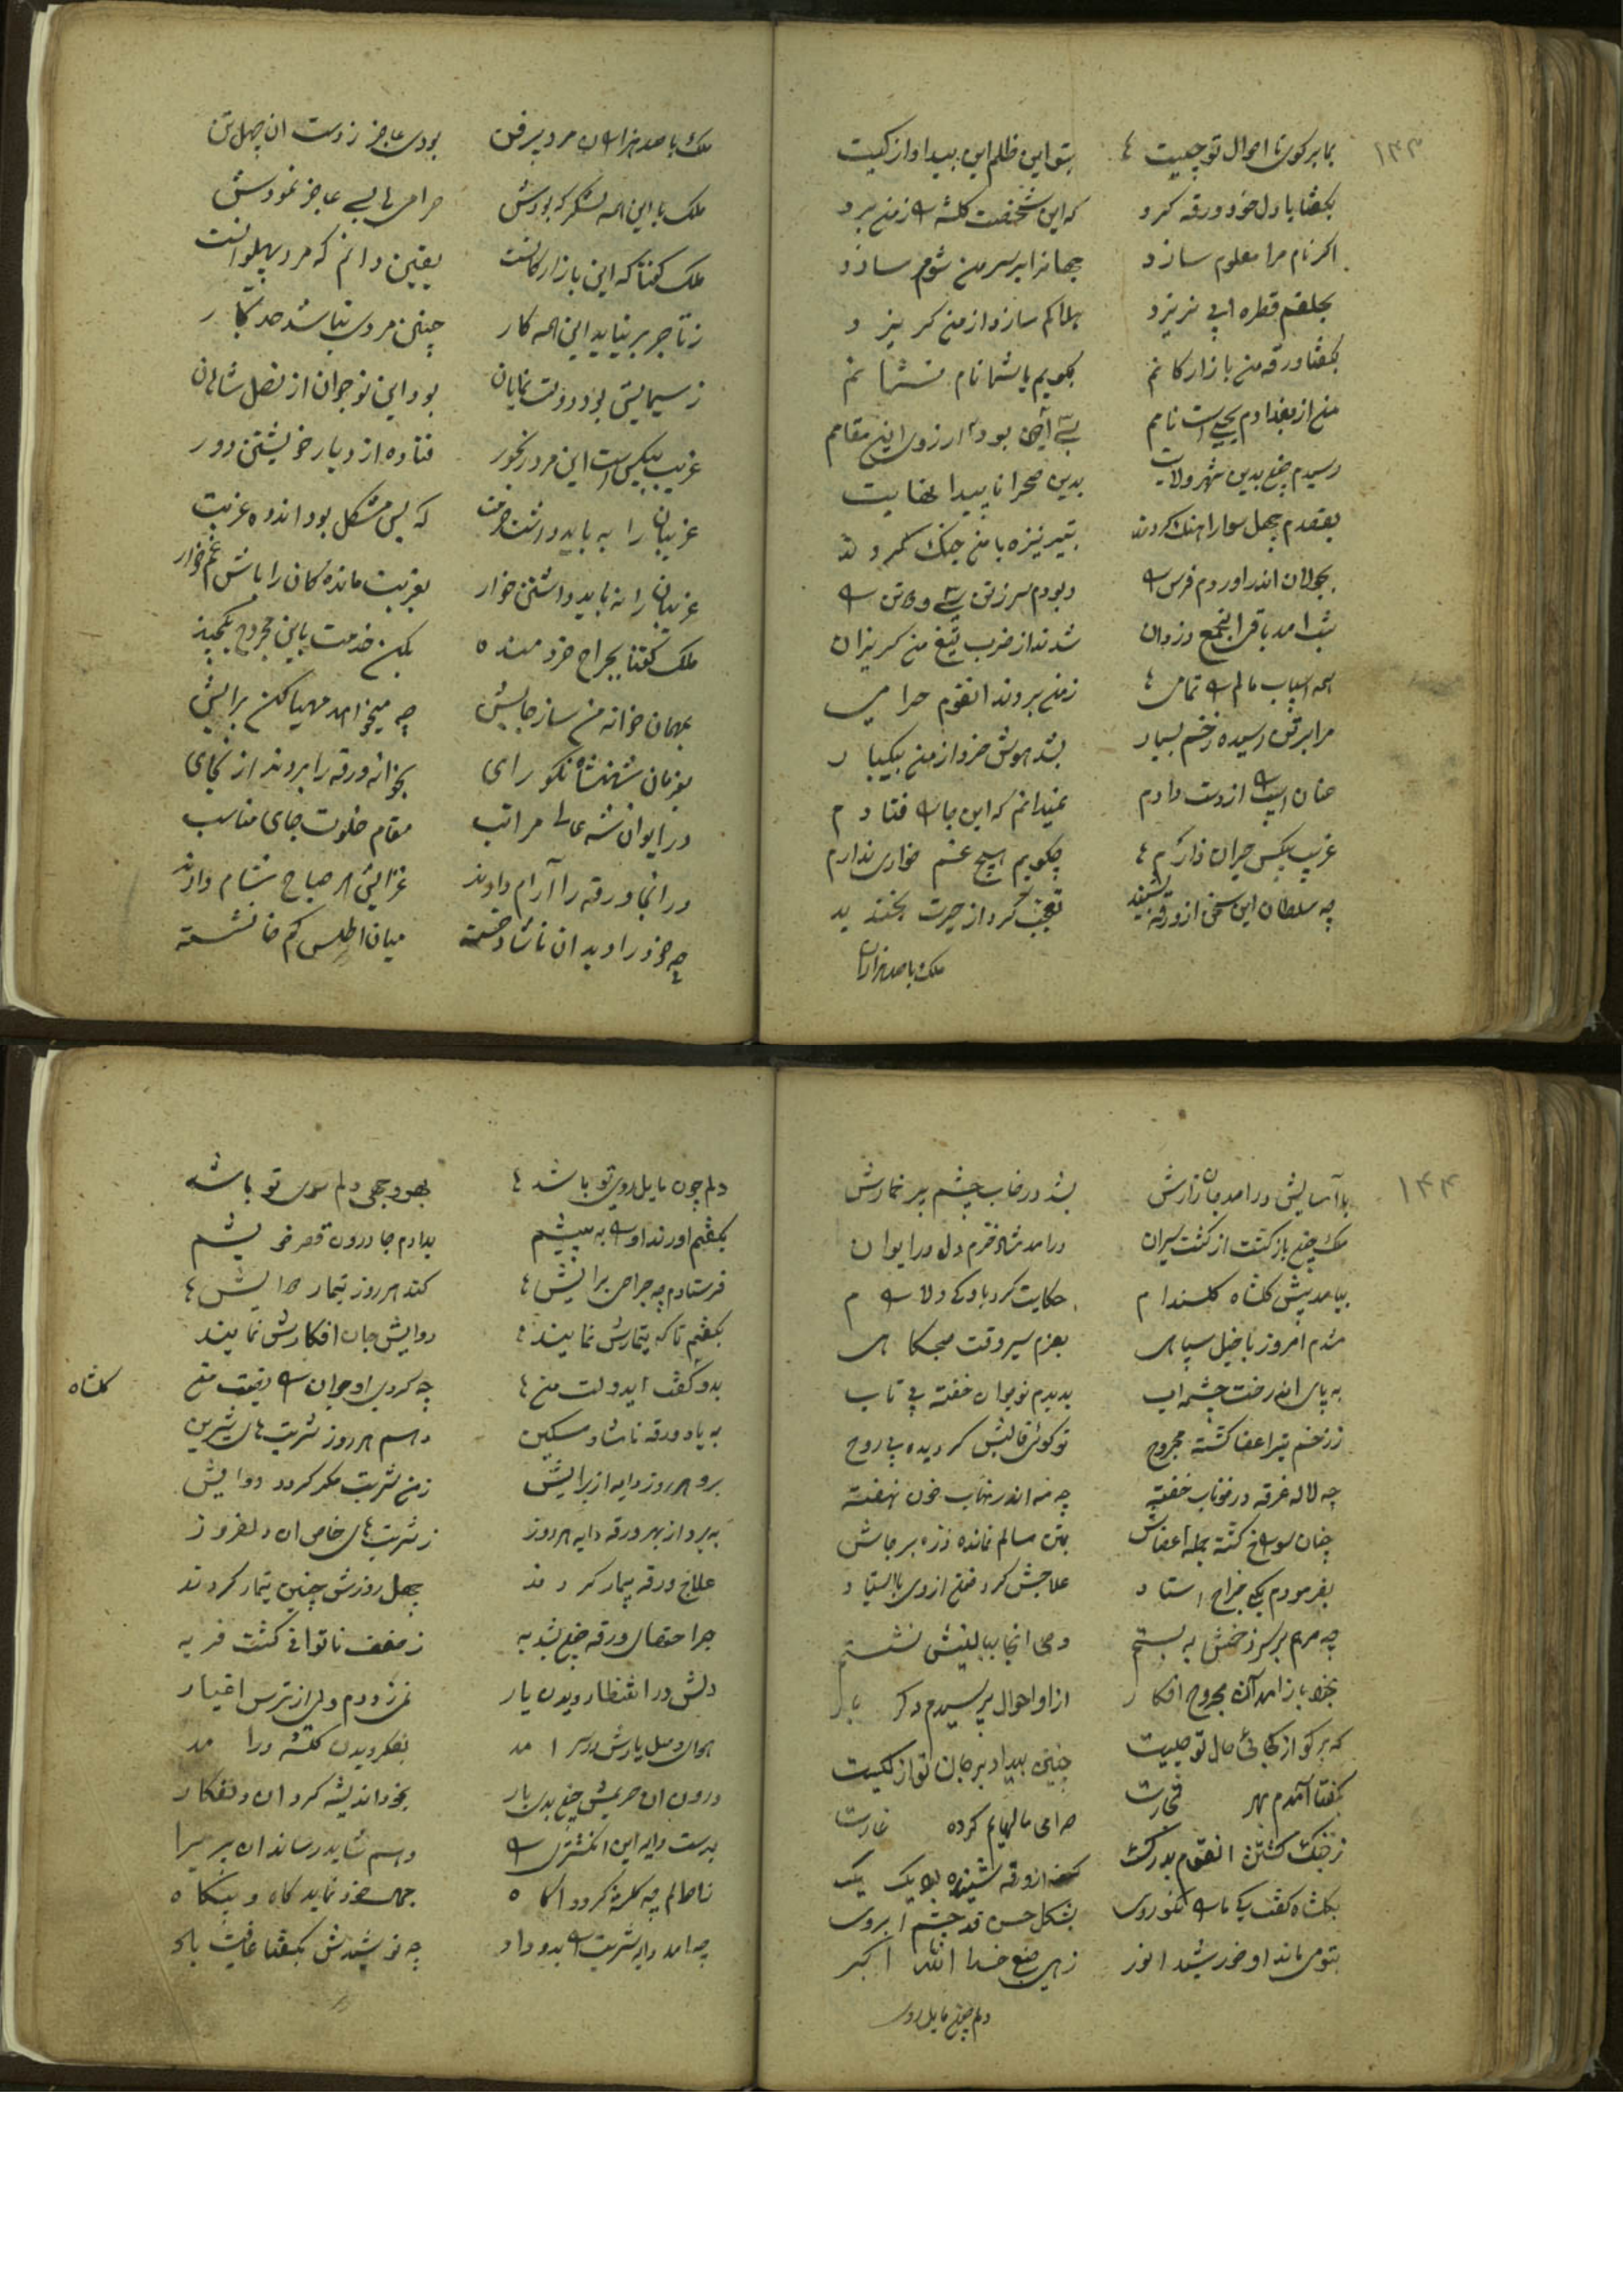 ۱۴۳
بما بر کوی تا احوال تو چیست بتو این ظلم این بیداد از کیست
بگفتا با دل خود ورقه کرد که این شخصست گلشه را ز من برد
اکر نام مرا معلوم سازد جهانرا بر سر من شوم سازد
بحلقم قطره ابی نریزد هلاکم سازد از من کریزد
بگفتا ورقه من بازارکانم بکویم با شما نام نشانم
من از بغدادم یحیی است نامم بود ارزوی این مقامم
رسیدم چون بدین شهر ولایت بدین صحرا ناپیدا نهایت
بقصدم چهل سوار اهنک کردند بتیر نیزه با من جنک کردند
بجولان اندر اوردم فرس را ربودم سر ز تن سی و کس را
شدند از ضرب تیغ من کریزان
همه اسباب مالم را تمامی ز من بردند انقوم حرامی
مرا بر تن رسیده زخم بسیار بشد هوش خرد از من بیکبار
عنان اسپ را از دست دادم نمیدانم که این جا فتادم
غریب بیکس حیران زارم چکویم هیچ غم خواری ندارم
چه سلطان این سخن از ورقه بشنید تعجب کرد از حیرت بخندید
ملک با صد هزاران
ملک با صد هزاران مرد پر فن بودی عاجز ز دست ان چهل تن
ملک با این همه لشکر که بودش حرامی عاجز نمودش
ملک کفتا که این بازارکانست یقین دانم که مرد پهلوانست
ز تاجر بر نیاید این همه کار چنین مردی نباشد
ز سیمایش بود دولت نمایان بود این نوجوان از نصل شاهان
غریب بیکس است این مرد رنجور فتاده از دیار خویشتن دور
غریبان را به باید داشت حرمت که بس مشکل بود اندوه غربت
غریبان را نباید داشتن خوار بغربت مانده کان را باش غمخوار
ملک کفتا بجراح خردمنده بکن خدمت باین مجروح یکچند
بمهمان خوانه من ساز جایش چه میخواهد مهیا کن برایش
بفرمان شهنشاه نکو رای بخوانه ورقه را بردند از جای
در ایوان شه عالی مراتب مقام خلوت جای مناسب
در انجا ورقه را آرام دادند غزایش هر صباح شام دادند
چه خود را دید ان ناشاد خسته میان اطلس کم خا نشسته
۱۴۴
با آسایش در امد جان زارش بشد در خاب چشم پر خمارش
ملک چون باز کشت از کشت سیران در امد شاد خرم دل در ایوان
بیامد پیش گلشاه گلندام حکایت کرد با وی
شدم امروز با خیل سپاهی بعزم سیر وقت صبحکاهی
به پای ان درخت چشمه اب بدیدم نوجوان خفته بی تاب
ز زخم تیر اعضا کشته مجروح تو کوئی قالبش کردیده بی روح
چه لاله غرقه در خوناب خفته چه مه اندر نقاب خون نهفته
چنان سوراخ کشته جمله اعضاش بتن سالم نمانده ذره بر جاش
بفرمودم یکی جراح استاد علاجش کرد
چه مرهم بر سر زخمش به بستم دمی انجا ببالینش نشستم
بخود باز امد آن مجروح افکار از او احوال پرسیدم دکر بار
که بر کو از کجائی حال تو چیست چنین بیداد بر جان تو از کیست
بگفتا آمدم بهر تجارت حرامی مالهایم کرده غارت
ز جنک کشتن انقوم بدرک ورقه شنیده بود یک یک
بگلشاه کفت یکتا نکو روی بشکل حسن قد چشم ابروی
بتو می ماند او خورشید انور زهی صنع خدا الله اکبر
دلم چون مایل روی
دلم چون مایل روی تو باشد بهر وجهی دلم سوی تو باشد
بگفتم اورند او را به پیشم بدادم جا درون قصر خویشم
فرستادم چه جراحی برایش کند هر روز تیمار
بگفتم تا که تیمارش نمایند دوایش جان افکارش نمایند
بدو کفت ایدولت من چه کردی او جوان را
گلشاه
به یاد ورقه ناشاد مسکین دهم هر روز شربت های شیرین
برو هر روز دایه از برایش ز من شربت ببر دوایش
به برد از بهر ورقه دایه هر روز ز شربت های خاص ان دلفروز
علاج ورقه بیمار کردند چهل روزش چنین تیمار کردند
جراحتهای ورقه چون بشد به ز ضعف ناتوانی کشت فربه
دلش در انتظار دیدن یار نمی زد دم ولی از ترس اغیار
هوای وصل یارش در سر امد بفکر دیدن گلشه در امد
درون ان حریمش چون بدی بار بخود اندیشه کرد ان دلفکار
بدست دایه این انکشتری را دهم شاید رساند ان پریرا
چه گلشه کردد اکاه جمال خود نماید کاه و بیکاه
چه امد دایه شربت را بدو داد چه نوشیدش بگفتا عافیت باد